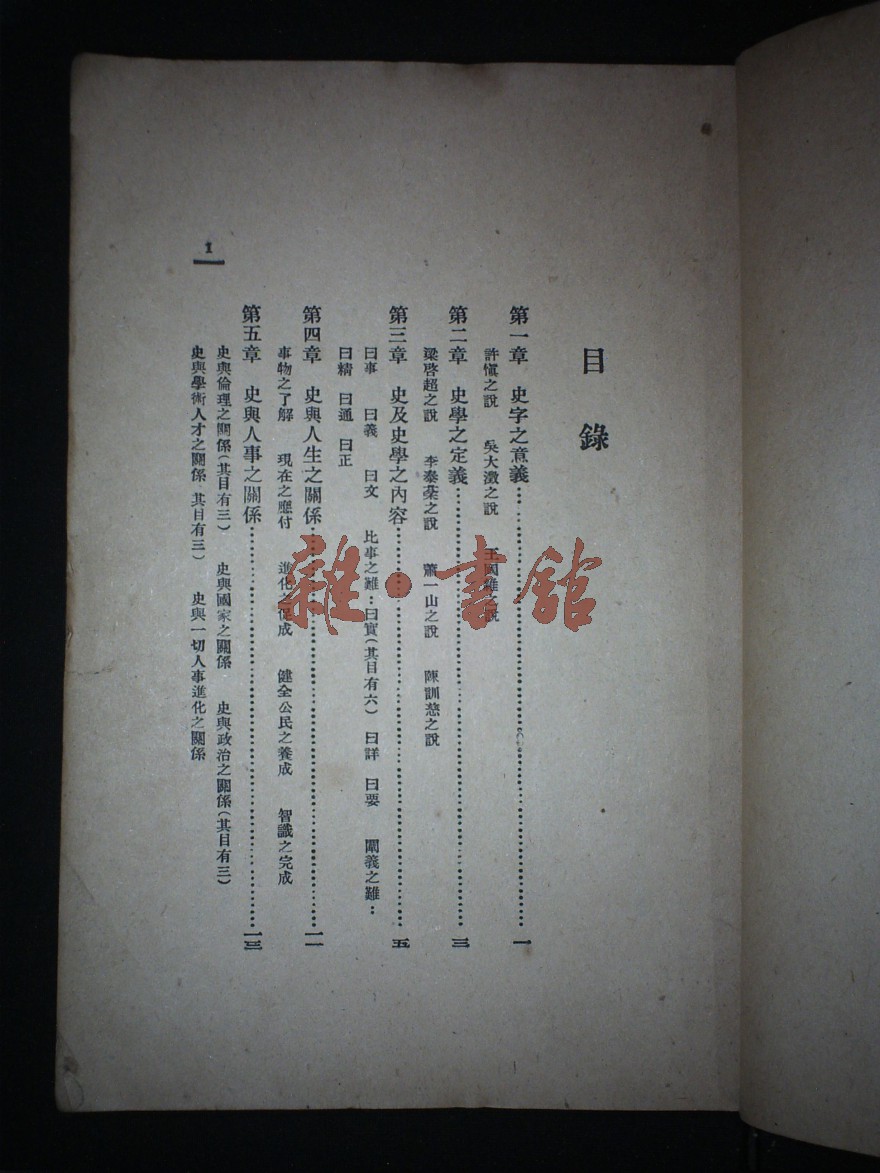 目錄
第一章 史字之意義⋯⋯⋯⋯⋯⋯一
許慎之說 吳大澂之說 王國維之說
第二章 史學之定義⋯⋯⋯⋯⋯⋯三
梁啓超之說 李泰棻之說 蕭一山之說 陳訓慈之說
第三章 史及史學之內容⋯⋯⋯⋯⋯⋯五
曰事 曰義 曰文 比事之難：曰實(其目有六) 曰詳 曰要 闡義之難：
曰精 曰通 曰正
第四章 史與人生之關係⋯⋯⋯⋯⋯⋯一一
事物之了解 現在之應付 進化之促成 健全公民之養成 智識之完成
第五章 史與人事之關係⋯⋯⋯⋯⋯⋯一三
史與倫理之關係(其目有三) 史與國家之關係 史與政治之關係(其目有三)
史與學術人才之關係 其目有三) 史與一切人事進化之關係
1
雜·書館